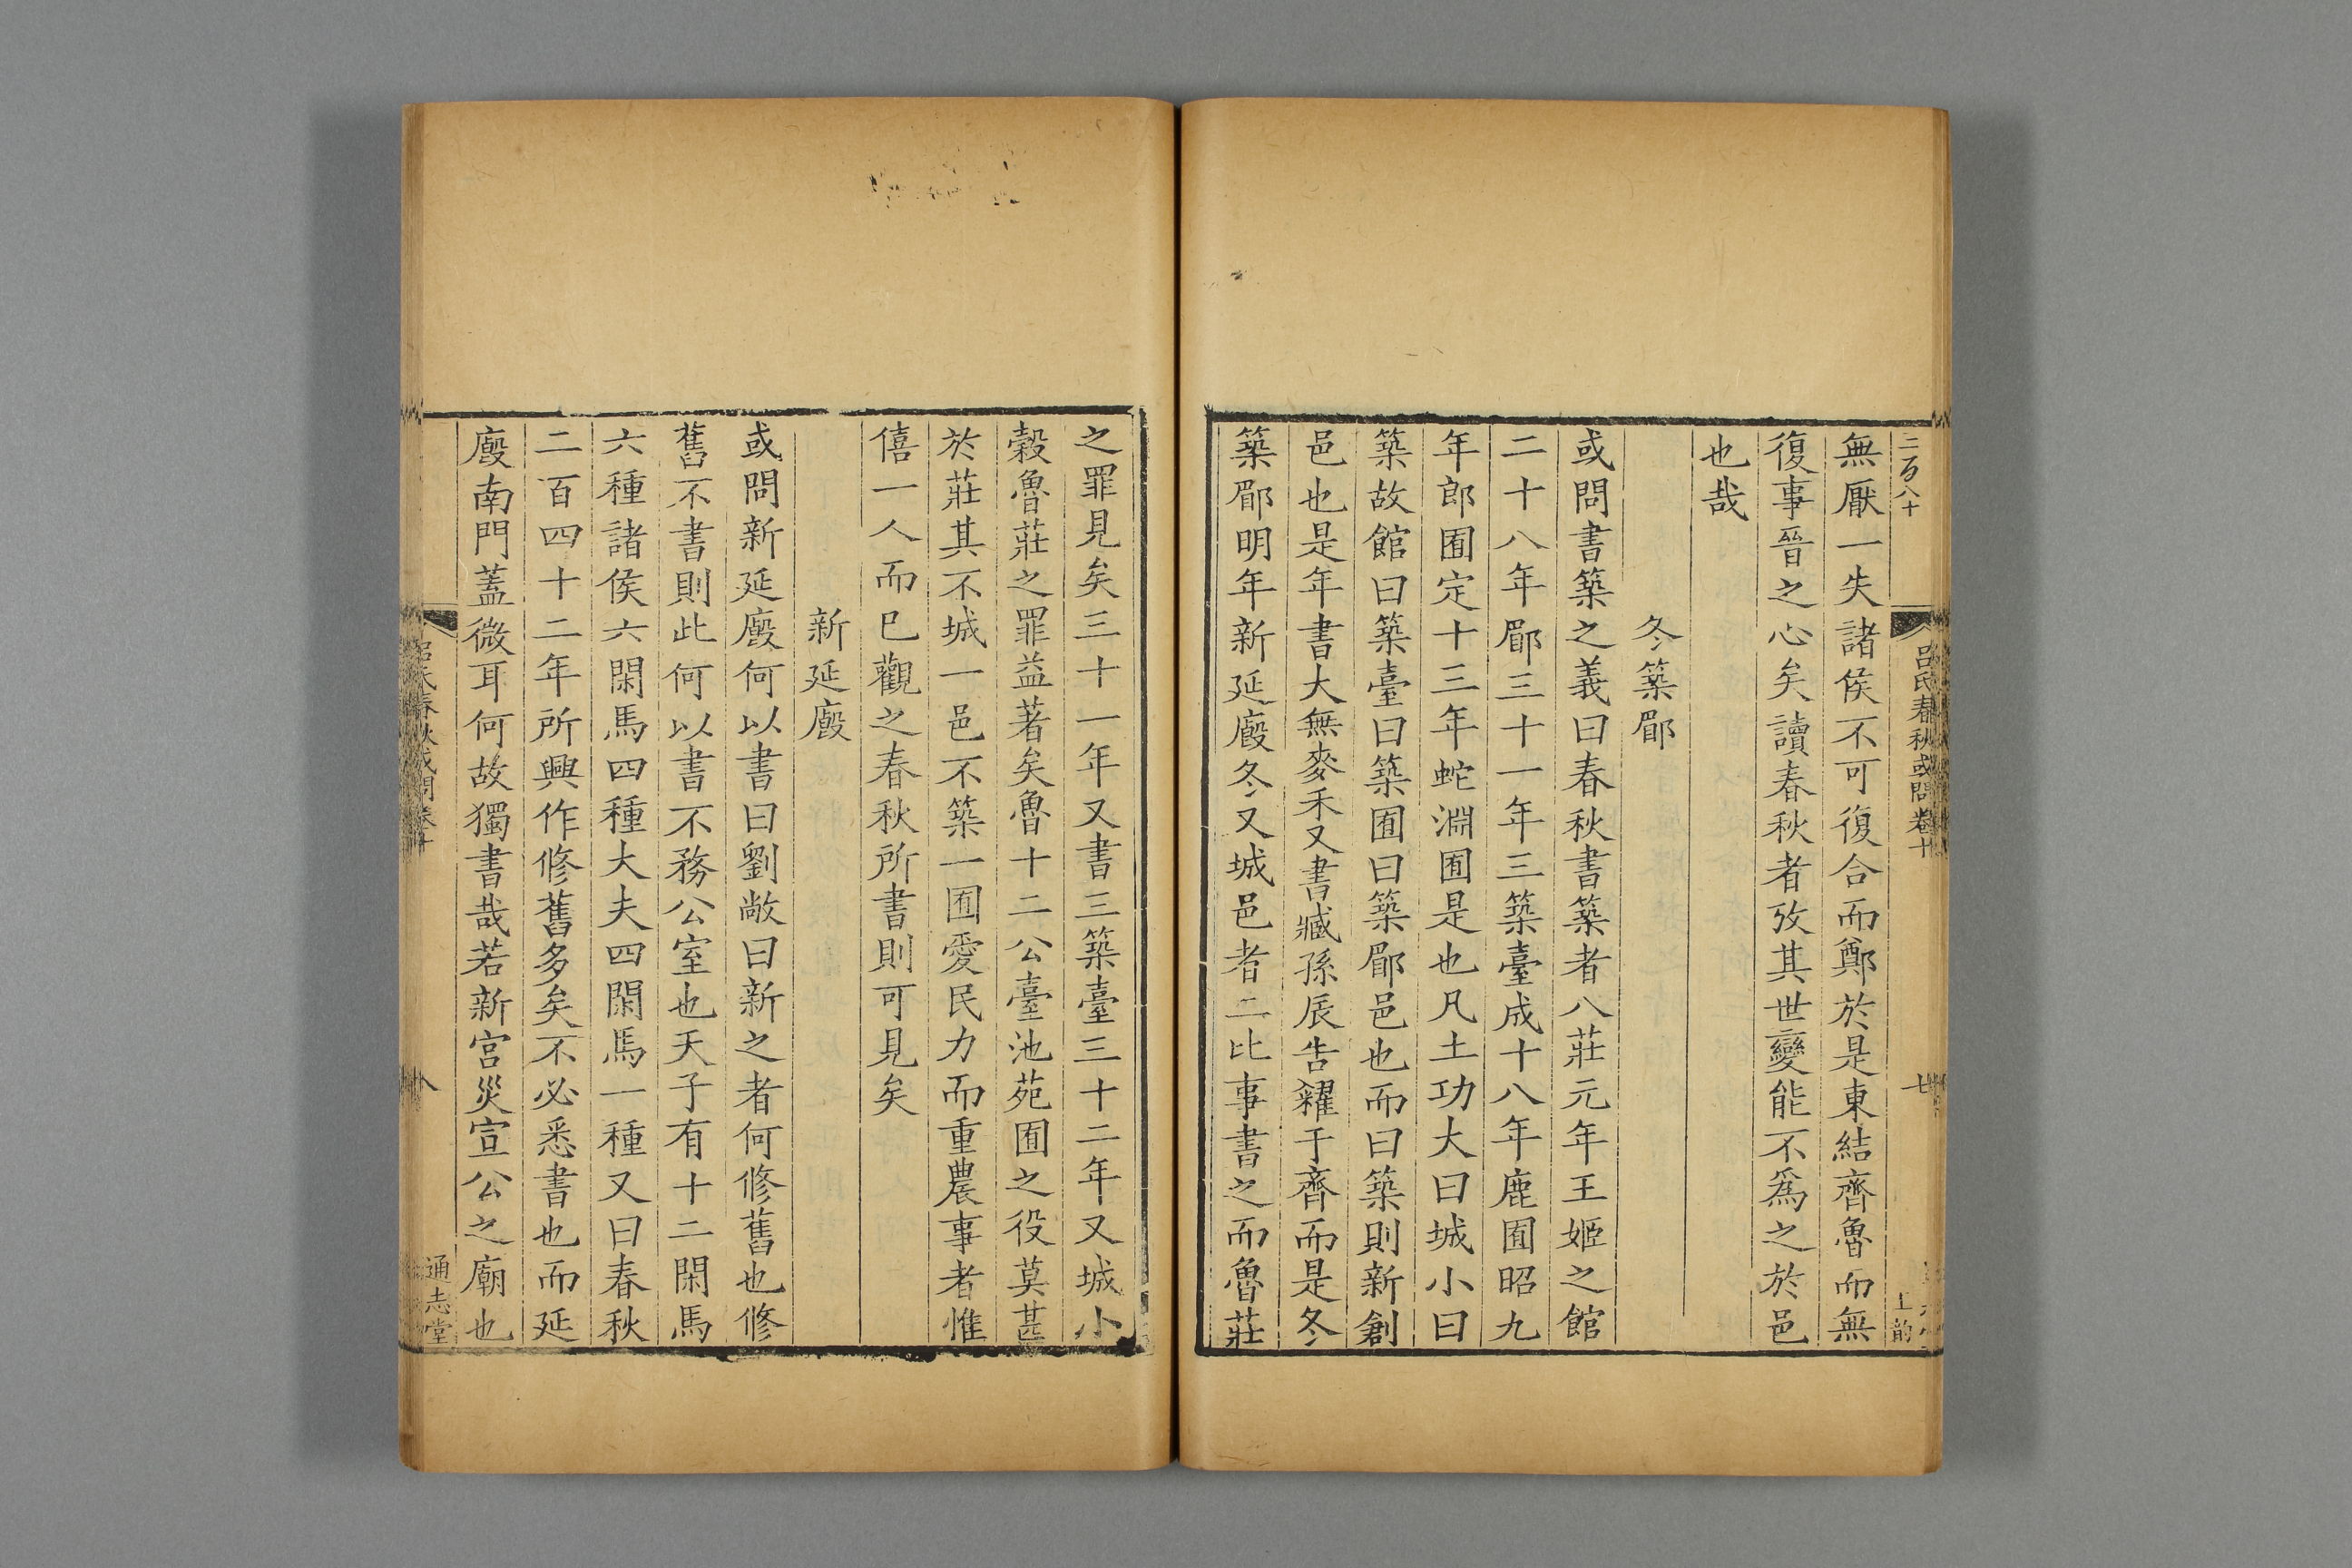 二百八十
呂氏春秋或問卷十
七
無厭一失諸侯不可復合而鄭於是東結齊魯而無
復事晉之心矣讀春秋者攷其世變能不爲之於邑
也哉
冬築郿
或問書築之義曰春秋書築者八莊元年王姬之館
二十八年郿三十一年三築臺成十八年鹿囿昭九
年郎囿定十三年蛇淵囿是也凡土功大曰城小曰
築故館曰築臺曰築囿曰築郿邑也而曰築則新創
邑也是年書大無麥禾又書臧孫辰告糴于齊而是冬
築郿明年新延廄冬又城邑者二比事書之而魯莊
之罪見矣三十一年又書三築臺三十二年又城小
穀魯莊之罪益著矣魯十二公臺池苑囿之役莫甚
於莊其不城一邑不築一囿愛民力而重農事者惟
僖一人而已觀之春秋所書則可見矣
新延廄
或問新延廄何以書曰劉敞曰新之者何修舊也修
舊不書則此何以書不務公室也天子有十二閑馬
六種諸侯六閑馬四種大夫四閑馬一種又曰春秋
二百四十二年所興作修舊多矣不必悉書也而延
廄南門蓋微耳何故獨書哉若新宮災宣公之廟也
呂氏春秋或問卷十
八
通志堂